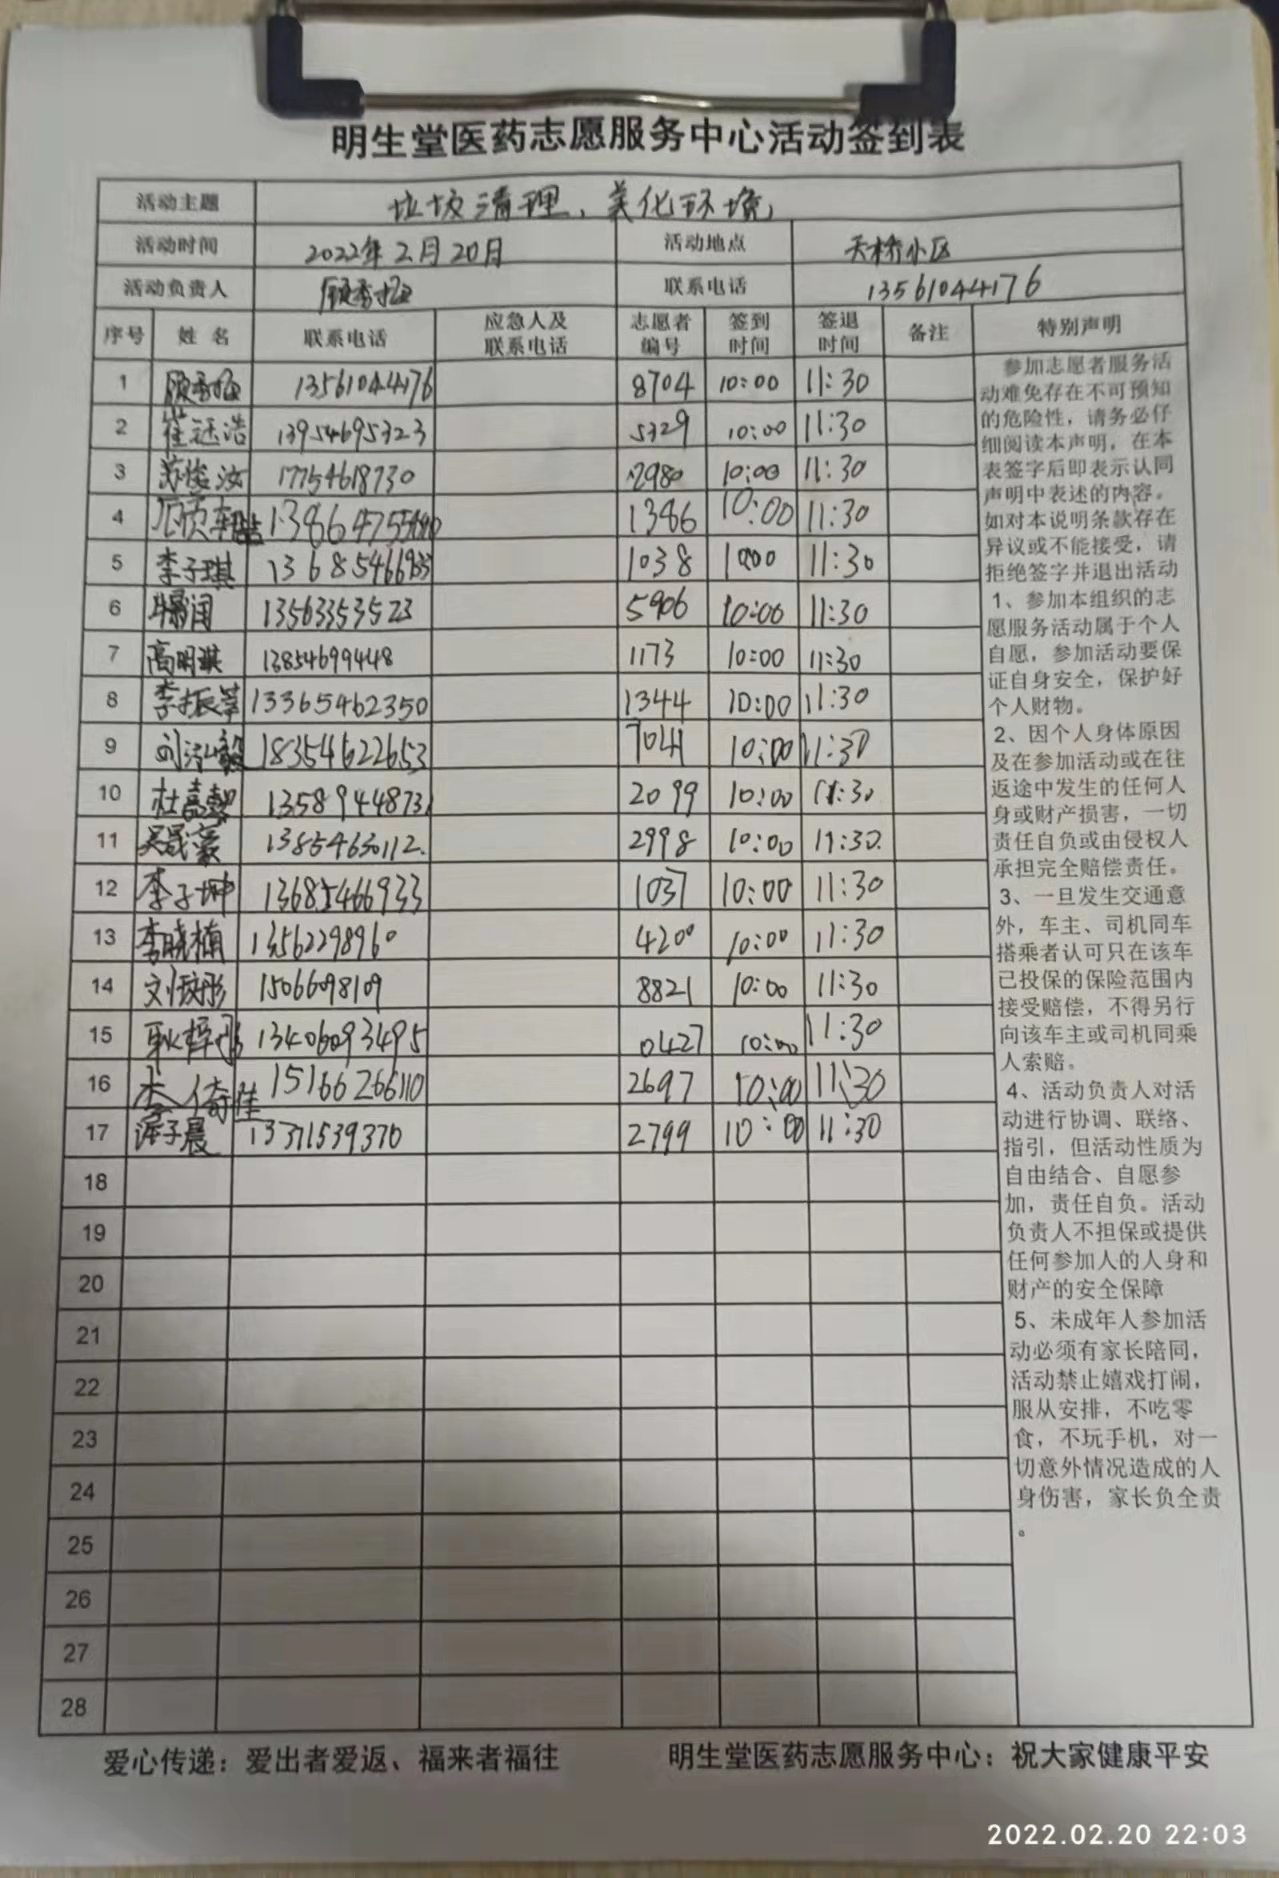 明生堂医药志愿服务中心活动签到表
活动主题 垃圾清理、美化环境
活动时间 2022年2月20日 活动地点 天桥小区
活动负责人 联系电话 13561044176
序号 姓名 联系电话 应急人及联系电话 志愿者编号 签到时间 签退时间 备注 特别声明
1 13561044176 8704 10:00 11:30
2 崔钰浩 13954695323 5329 10:00 11:30
3 17754618730 2980 10:00 11:30
4 1386 10:00 11:30
5 李子琪 13685466933 1038 10:00 11:30
6 13563353523 5906 10:00 11:30
7 高明琪 13854699448 1173 10:00 11:30
8 13365462350 1344 10:00 11:30
9 18354622653 7041 10:00 11:30
10 2099 10:00 11:30
11 吴晟豪 13854630112 2998 10:00 11:30
12 李子坤 13685466933 1037 10:00 11:30
13 李晓楠 13562298960 4200 10:00 11:30
14 15066098109 8821 10:00 11:30
15 13406093495 0427 10:00 11:30
16 李倚佳 15166266110 2697 10:00 11:30
17 13371539370 2799 10:00 11:30
18
19
20
21
22
23
24
25
26
27
28
参加志愿者服务活
动难免存在不可预知
的危险性，请务必仔
细阅读本声明，在本
表签字后即表示认同
声明中表述的内容。
如对本说明条款存在
异议或不能接受，请
拒绝签字并退出活动
1、参加本组织的志
愿服务活动属于个人
自愿，参加活动要保
证自身安全，保护好
个人财物。
2、因个人身体原因
及在参加活动或在往
返途中发生的任何人
身或财产损害，一切
责任自负或由侵权人
承担完全赔偿责任。
3、一旦发生交通意
外，车主、司机同车
搭乘者认可只在该车
已投保的保险范围内
接受赔偿，不得另行
向该车主或司机同乘
人索赔。
4、活动负责人对活
动进行协调、联络、
指引，但活动性质为
自由结合、自愿参
加，责任自负。活动
负责人不担保或提供
任何参加人的人身和
财产的安全保障
5、未成年人参加活
动必须有家长陪同，
活动禁止嬉戏打闹，
服从安排，不吃零
食，不玩手机，对一
切意外情况造成的人
身伤害，家长负全责
。
爱心传递：爱出者爱返、福来者福往 明生堂医药志愿服务中心：祝大家健康平安
2022.02.20 22:03